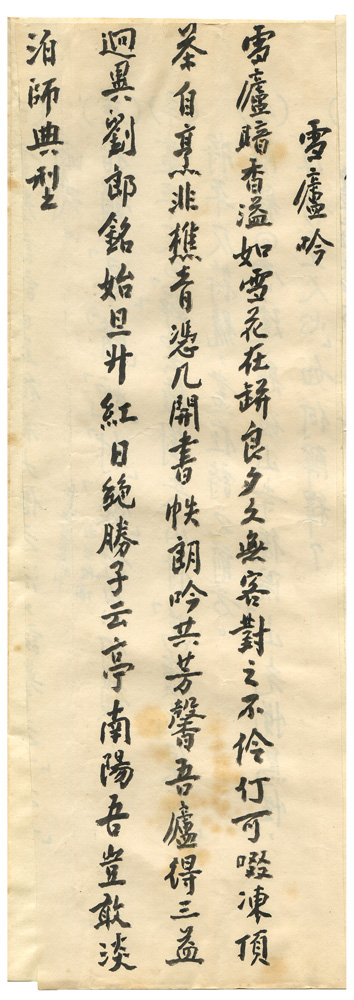 雪廬吟
雪廬暗香溢如雪花在缾良夕久無客對之不伶仃可啜凍頂
茶自烹非樵青憑几開書帙朗吟共芳馨吾廬得三益
迥異劉郎銘始旦升紅日絕勝子云亭南陽吾豈敢淡
泊師典型